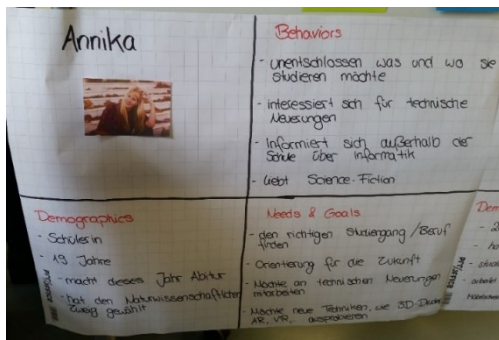 Annika
Behaviors
- unentschlossen was und wo sie
studieren möchte
- interessiert sich für technische
Neuerungen
- Informiert sich außerhalb der
Schule über Informatik
- liebt Science-Fiction
Demographics
- Schülerin
- 19 Jahre
- macht dieses Jahr Abitur
- hat den Naturwissenschaftlichen
Zweig gewählt
Needs & Goals
- den richtigen Studiengang/Beruf
finden
- Orientierung für die Zukunft
- Möchte an technischen Neuerungen
mitarbeiten
- Möchte neue Techniken, wie 3D-Drucker
AR, VR,.. ausprobieren
Dem